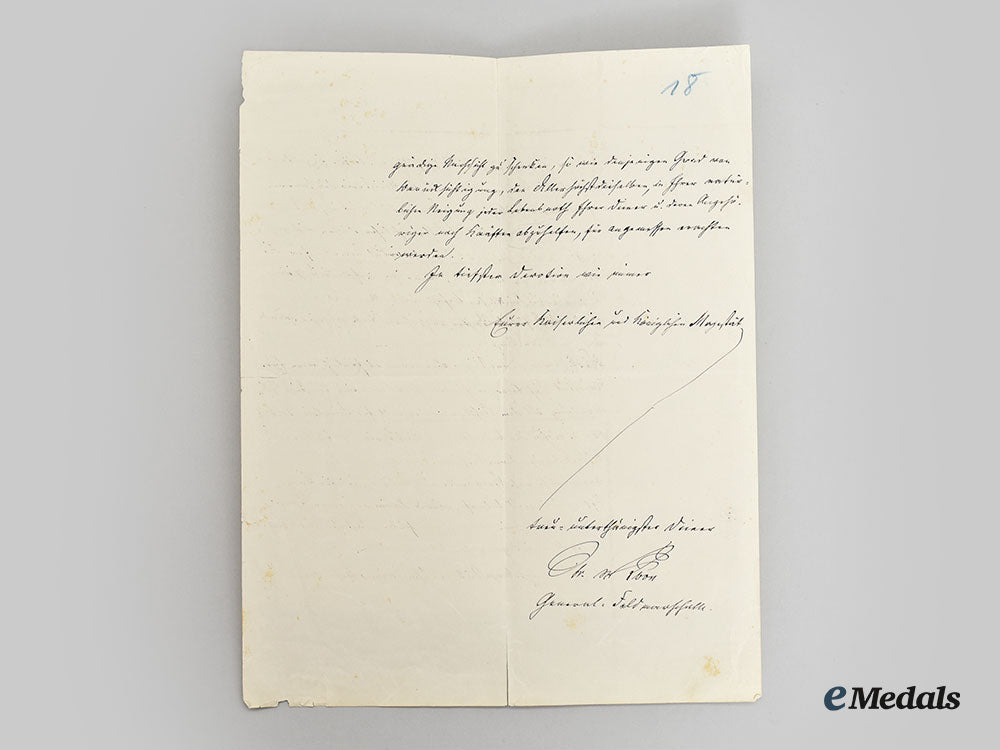 18
gnädige Nachsicht zu schenken, so wie denjenigen Grad von
Berücksichtigung, den Allerhöchstdieselben in Ihrer natür-
lichen Neigung jeder Lebensnoth Ihrer Diener u. deren Angehö-
rigen nach Kräften abzuhelfen, für angemessen erachten
werden.
In tiefster Devotion wie immer
Eurer Kaiserlichen und Königlichen Majestät
treu-unterthänigster Diener
Gr. v Roon
General-Feldmarschall.
eMedals